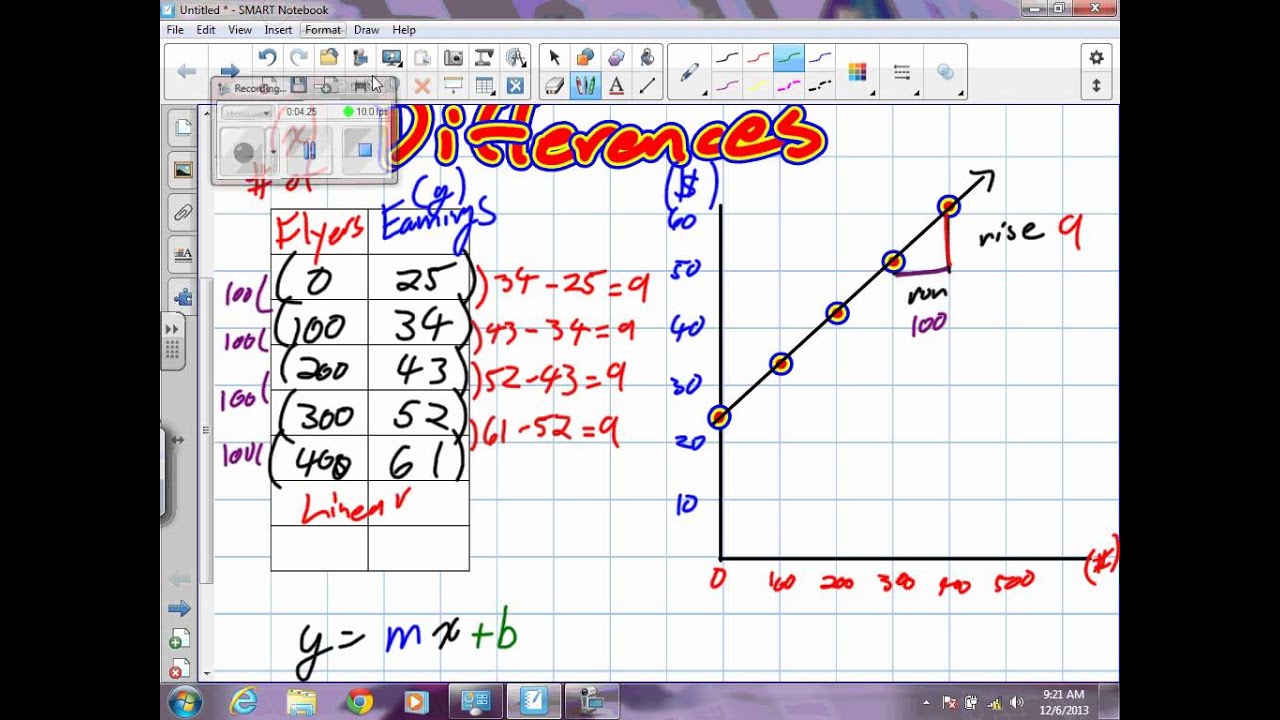 Untitled * - SMART Notebook
File Edit View Insert Format Draw Help
Recording...
0:04:25 10.0 fps
Differences
(x)
# of
Flyers
(y)
Earnings
(0 25) )34-25=9
100( (100 34) )43-34=9
100( (200 43) )52-43=9
100( (300 52) )61-52=9
100( (400 61)
Linear
y = mx+b
($)
60
50
40
30
20
10
rise 9
run
100
0 100 200 300 400 500 (#)
9:21 AM
12/6/2013